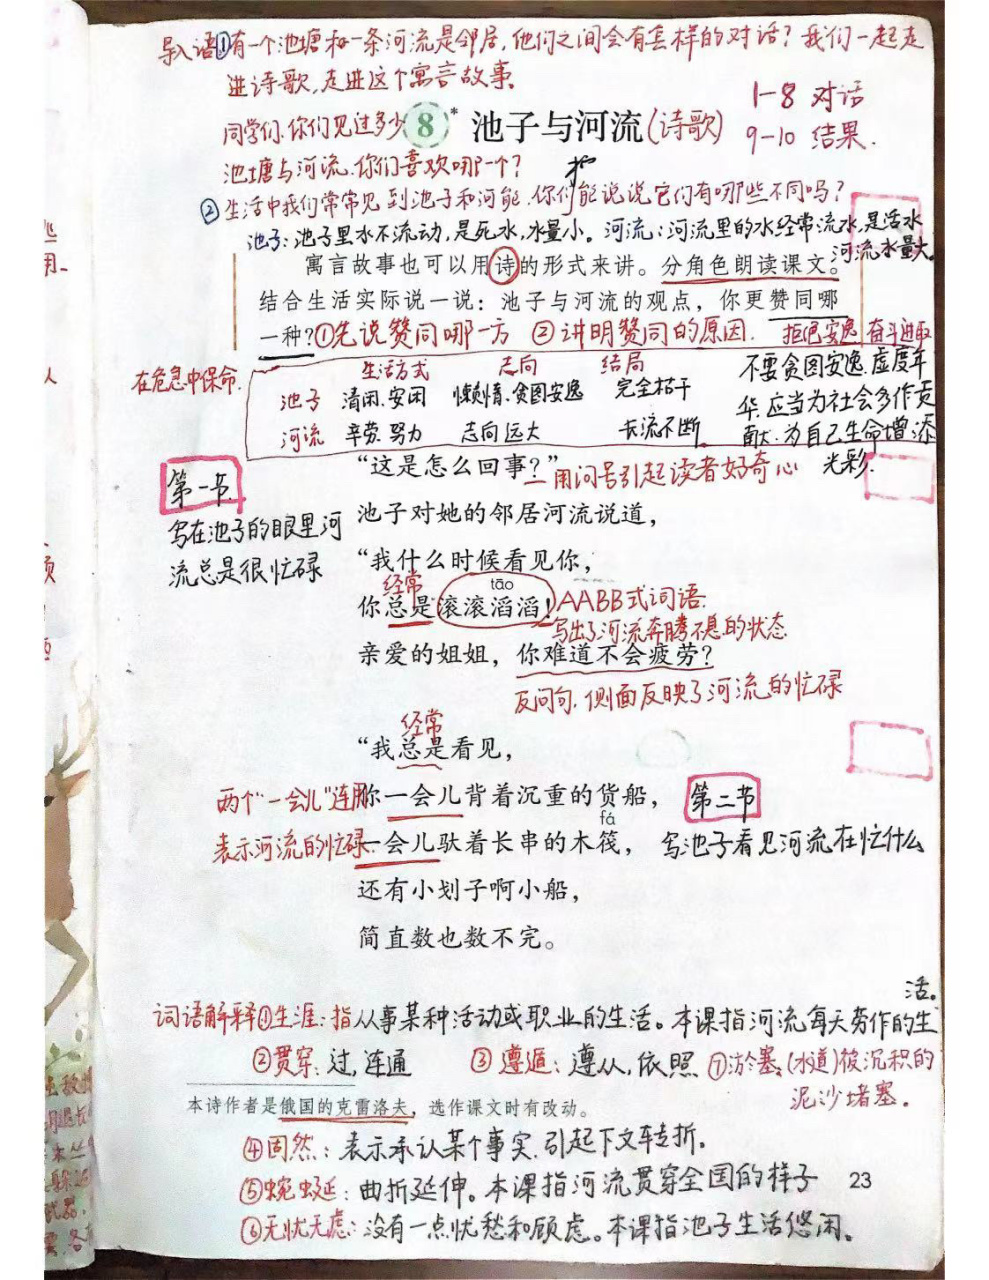 导入语①有一个池塘和一条河流是邻居,他们之间会有怎样的对话?我们一起走
进诗歌,走进这个寓言故事。
1-8 对话
9-10 结果.
同学们.你们见过多少
8* 池子与河流(诗歌)
池塘与河流.你们喜欢哪一个?
②生活中我们常常见到池子和河能.你们能说说它们有哪些不同吗?
池子:池子里水不流动,是死水,水量小。河流:河流里的水经常流水,是活水
河流水量大。
寓言故事也可以用诗的形式来讲。分角色朗读课文。
结合生活实际说一说:池子与河流的观点,你更赞同哪
一种?①先说赞同哪一方 ②讲明赞同的原因.
拒绝安逸 奋斗进取
在危急中保命.
生活方式 志向 结局
池子 清闲.安闲 懒惰.贪图安逸 完全枯干
河流 辛劳.努力 志向远大 长流不断
不要贪图安逸.虚度年
华.应当为社会多作贡
献.为自己生命增添
光彩.
“这是怎么回事?”—用问号引起读者好奇心
第一节
写在池子的眼里河
流总是很忙碌
池子对她的邻居河流说道,
“我什么时候看见你,
经常
tāo
你总是滚滚滔滔!AABB式词语.
写出了河流奔腾不息的状态
亲爱的姐姐,你难道不会疲劳?
反问句.侧面反映了河流的忙碌
经常
“我总是看见,
两个“一会儿”连用
你一会儿背着沉重的货船,
第二节
fá
表示河流的忙碌
一会儿驮着长串的木筏,
写池子看见河流在忙什么
还有小划子啊小船,
简直数也数不完。
活。
词语解释①生涯:指从事某种活动或职业的生活。本课指河流每天劳作的生
②贯穿:过,连通 ③遵循:遵从,依照 ⑦淤塞:(水道)被沉积的
泥沙堵塞.
本诗作者是俄国的克雷洛夫,选作课文时有改动。
④固然:表示承认某个事实.引起下文转折.
⑤蜿蜒:曲折延伸。本课指河流贯穿全国的样子
23
⑥无忧无虑:没有一点忧愁和顾虑。本课指池子生活悠闲。